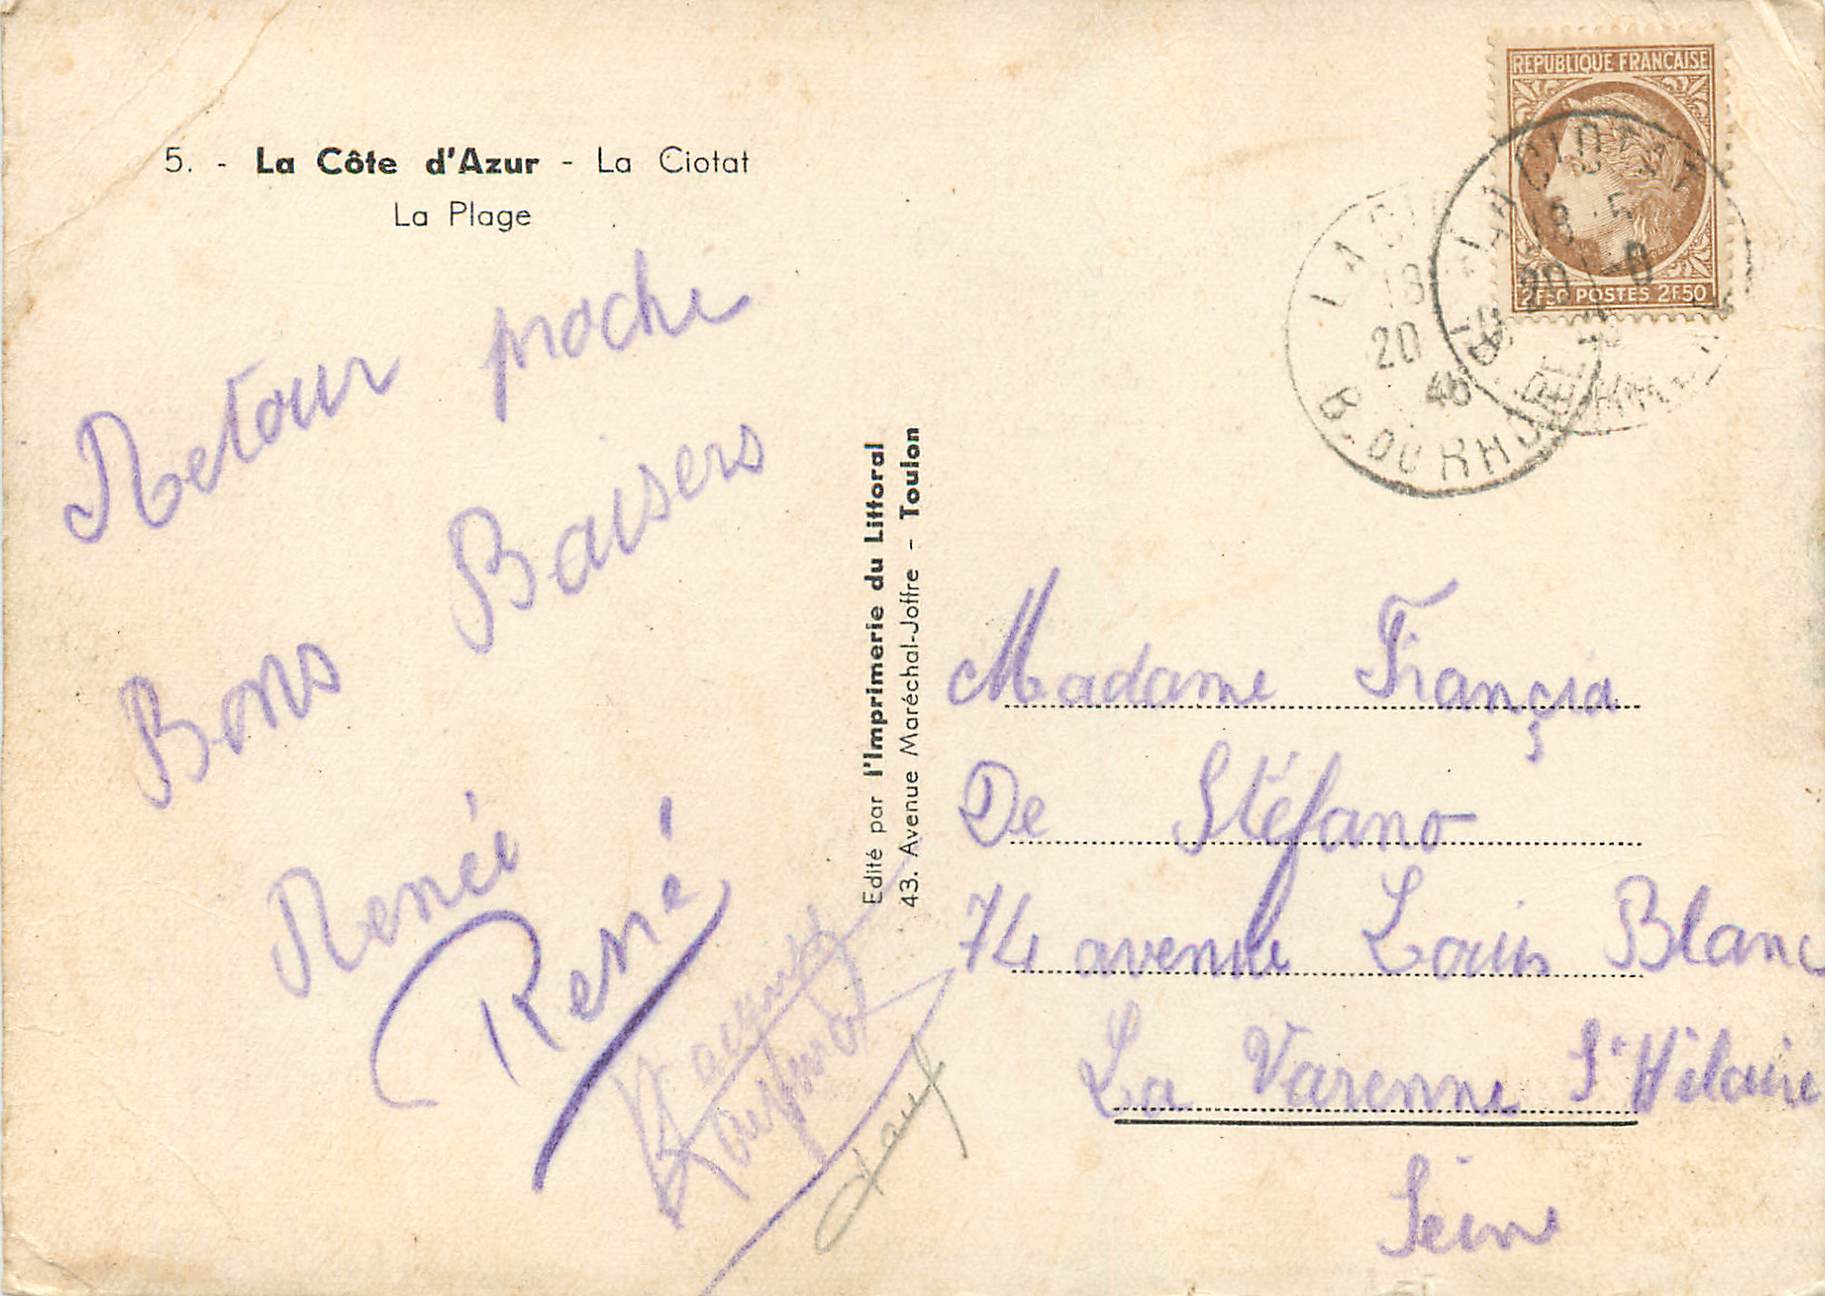 5. - La Côte d'Azur - La Ciotat
La Plage
Retour proche
Bons Baisers
Renée
René
Raymond
Edité par l'Imprimerie du Littoral
43. Avenue Maréchal-Joffre - Toulon
REPUBLIQUE FRANÇAISE
2F50 POSTES 2F50
LA CIOTAT
18
20
46
B. DU RHÔNE
Madame Françia
De Stéfano
74 avenue Louis Blanc
La Varenne St Hilaire
Seine